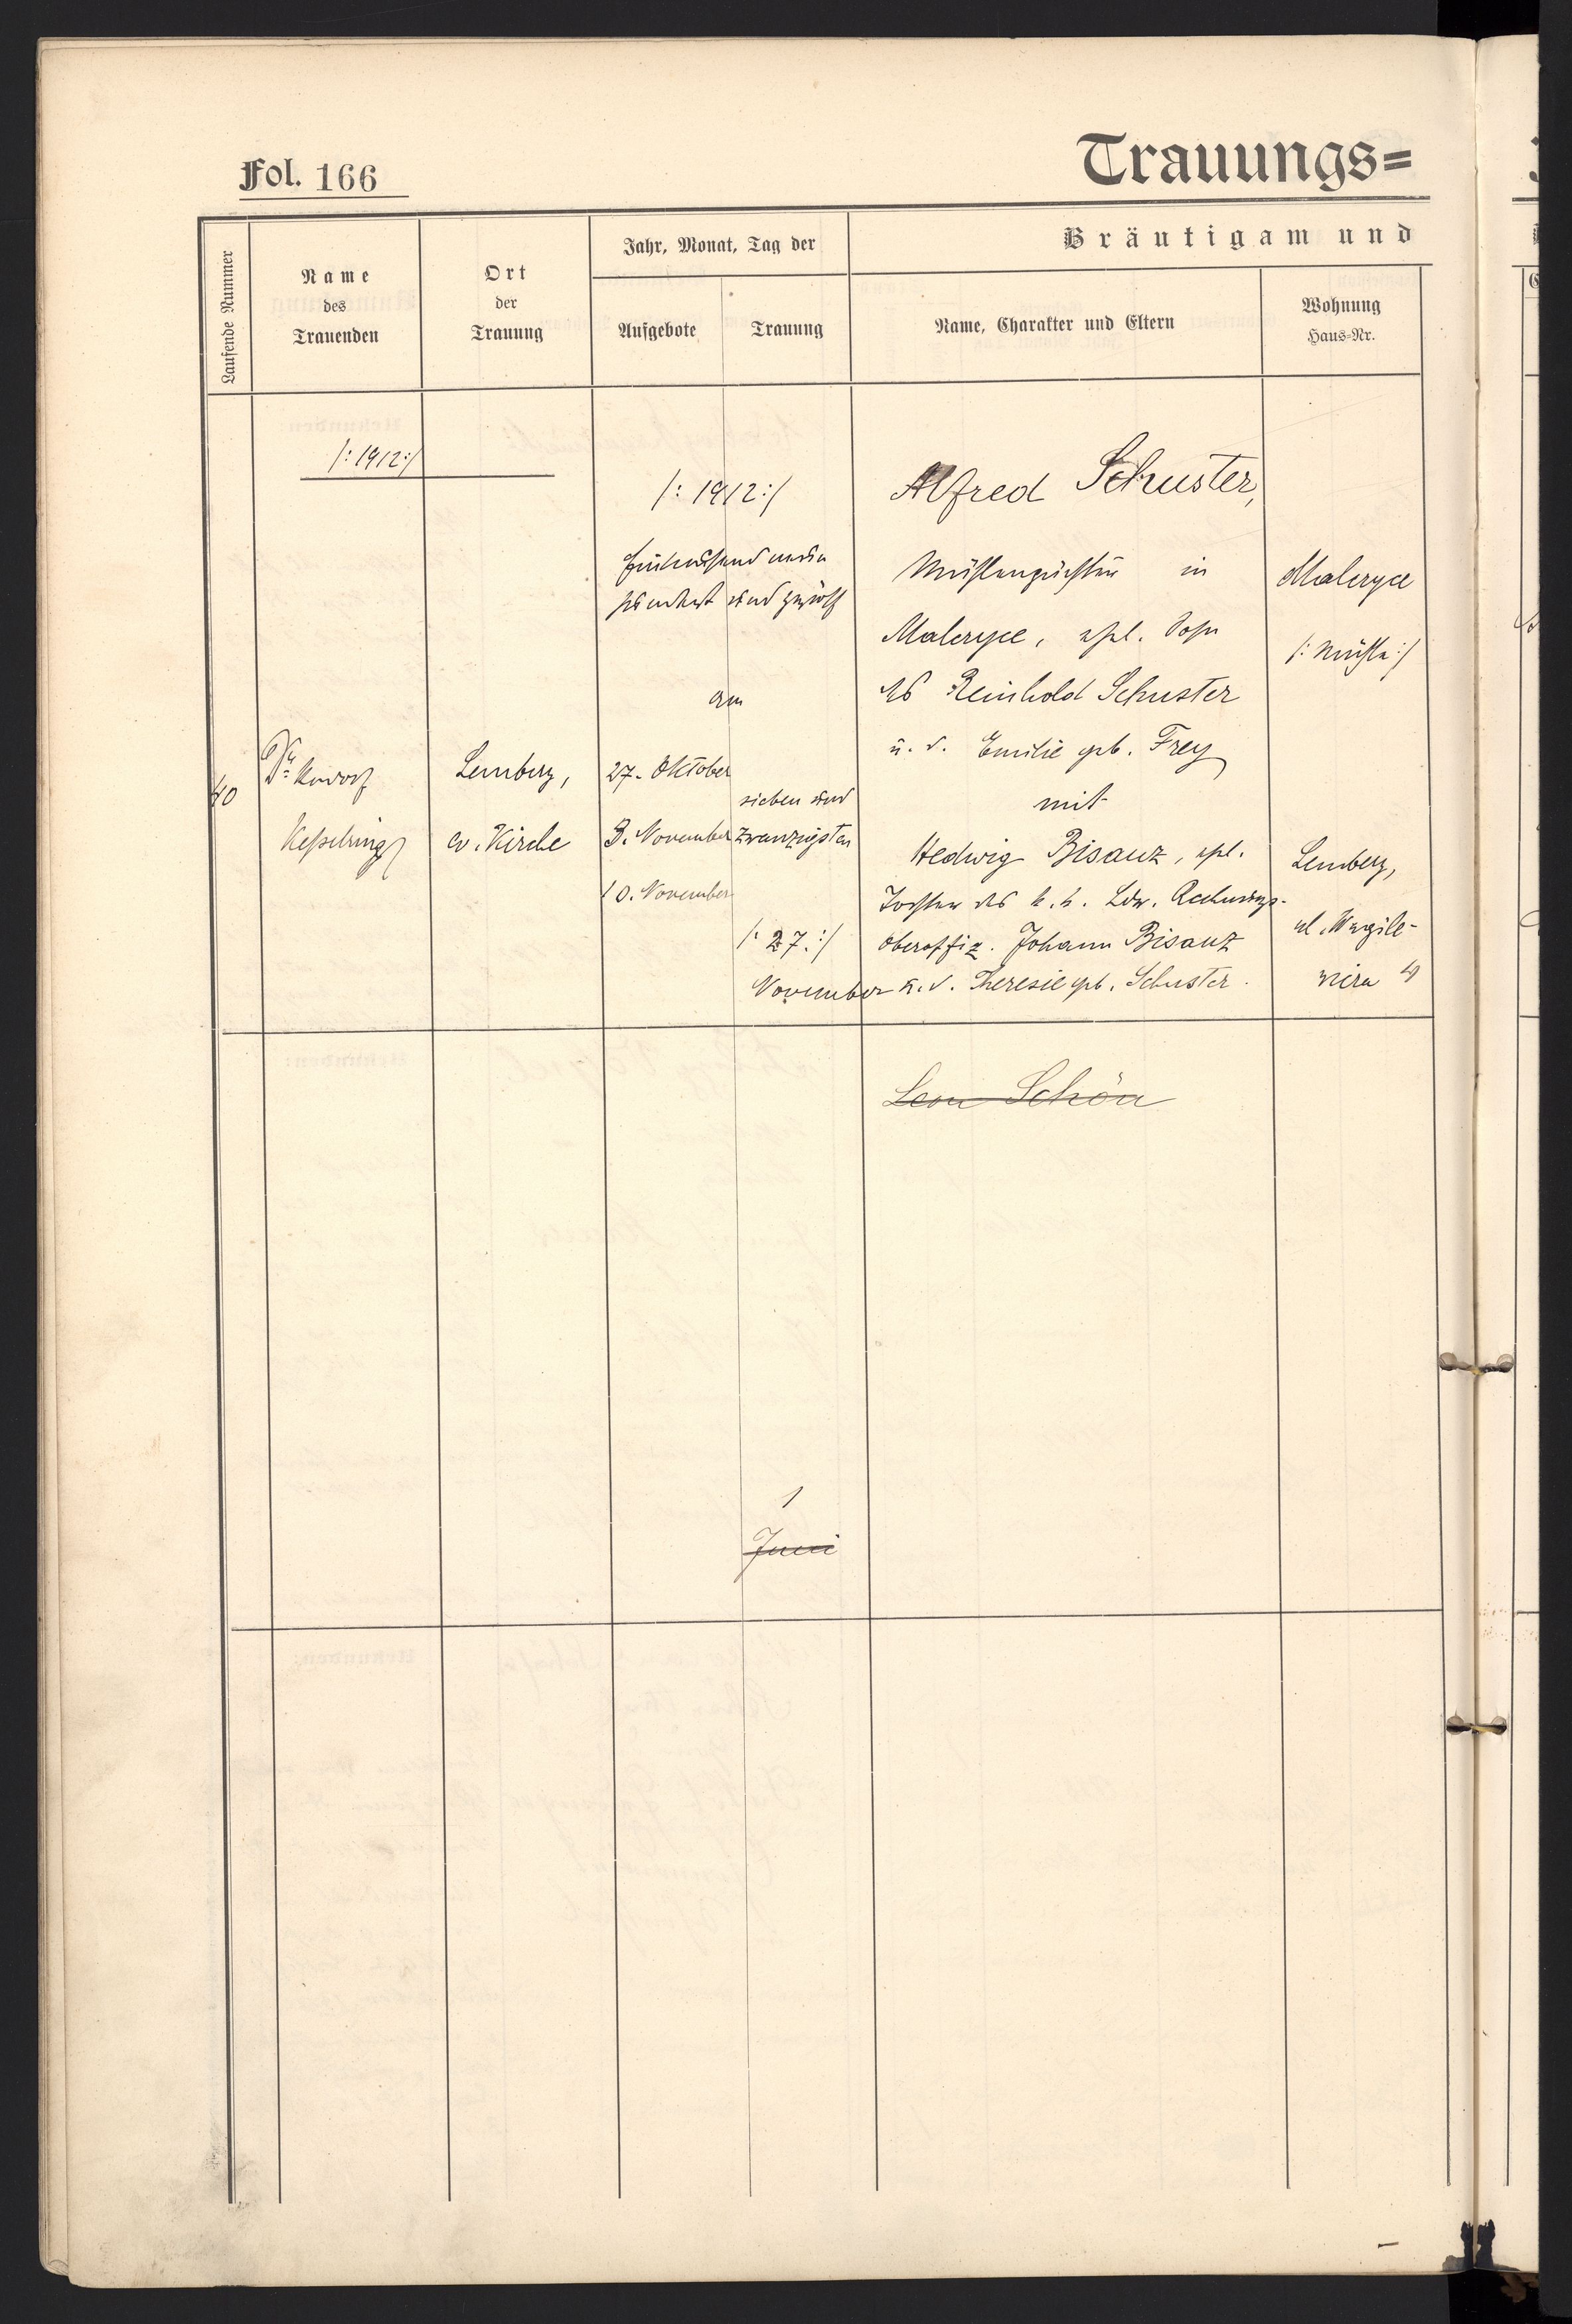 Fol. 166
Trauungs=
Laufende Nummer
Name
des
Trauenden
Ort
der
Trauung
Jahr, Monat, Tag der
Aufgebote
Trauung
Bräutigam und
Name, Charakter und Eltern
Wohnung
Haus=Nr.
/: 1912 :/
40
Dr. Rudolf
Kesselring
Lemberg,
ev. Kirche
/: 1912 :/
Eintausend neun
hundert und zwölf
am
27. Oktober
3. November
10. November
sieben und
zwanzigsten
/: 27. :/
November
Alfred Schuster,
Mühlenpächter in
Maleryce, ehl. Sohn
des Reinhold Schuster
u. d. Emilie geb. Frey
mit
Hedwig Bisanz, ehl.
Tochter des k. k. Ldw. Rechnungs-
oberoffiz. Johann Bisanz
u. d. Theresie geb. Schuster.
Maleryce
/: Mühle :/
Lemberg,
ul.
Leon Schön
1
Juni